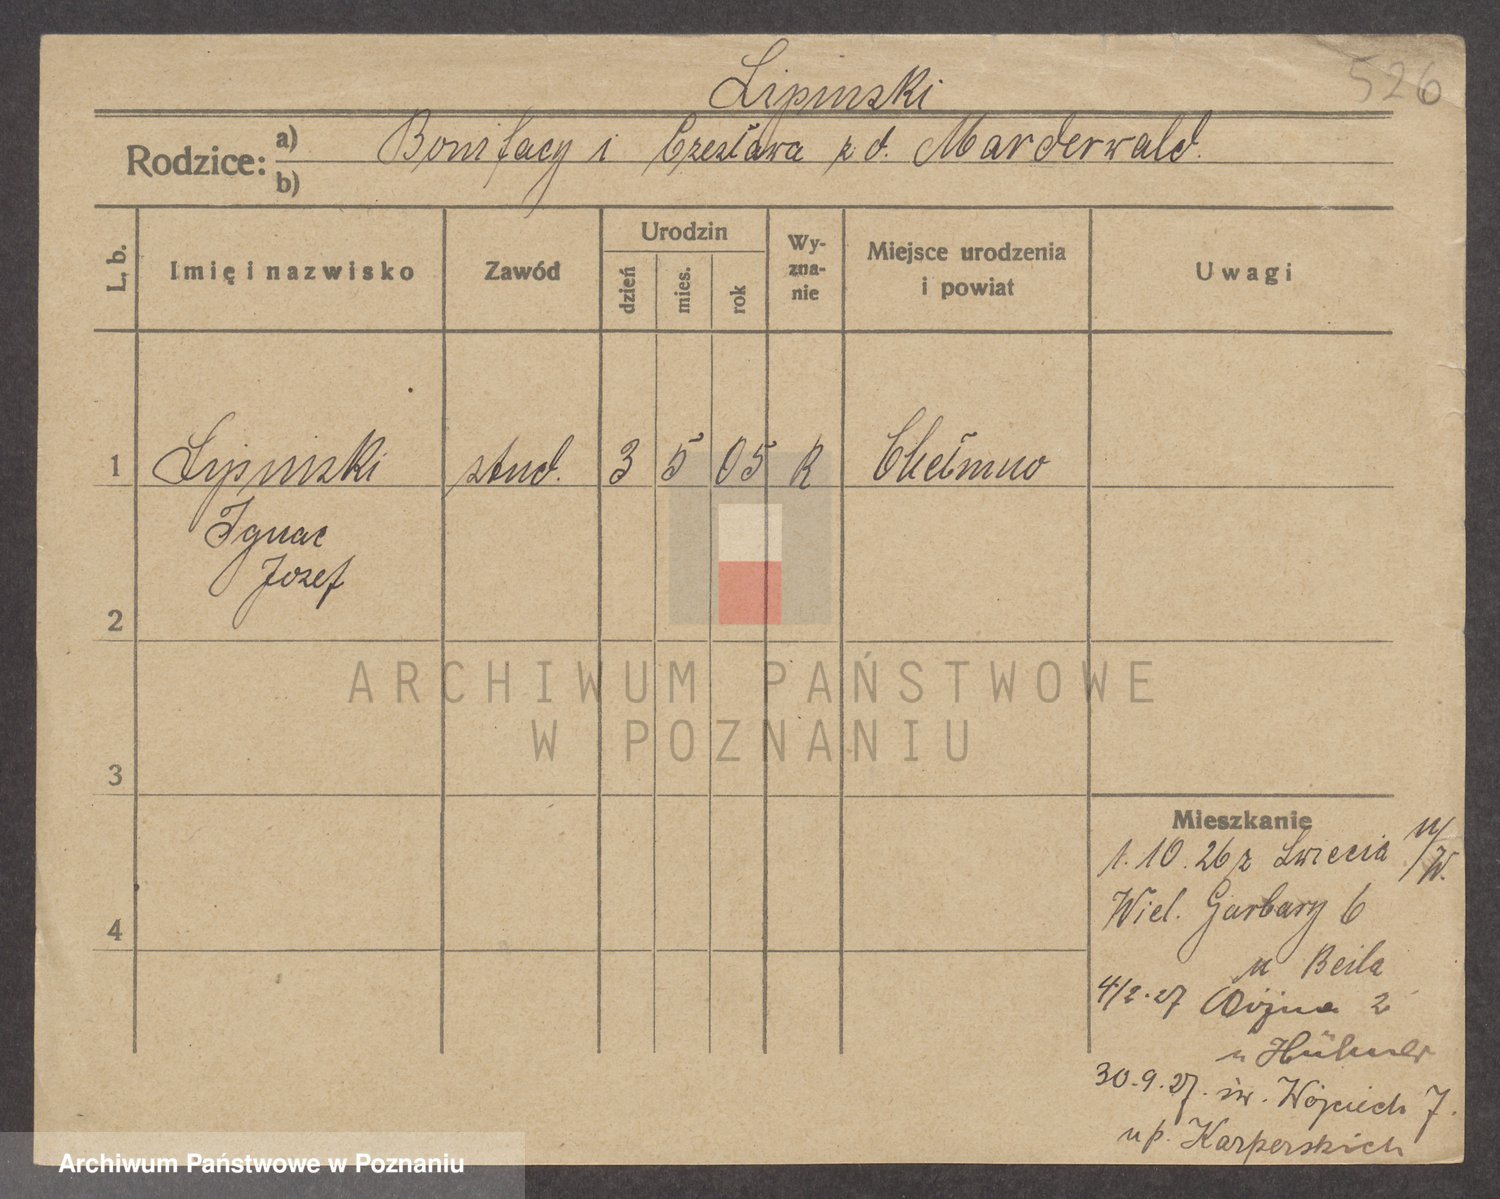 526
Lipinski
Rodzice: a) Bonifacy i Czesława z d. Marderwald.
b)
L. b.
Imię i nazwisko
Zawód
Urodzin
dzień
mies.
rok
Wy-
zna-
nie
Miejsce urodzenia
i powiat
Uwagi
1 Lipinski stud. 3 5 05 R Chełmno
Ignac
Jozef
2
3
4
ARCHIWUM PAŃSTWOWE
W POZNANIU
Mieszkanie
1.10.26 z
Wiel. Garbary 6
u Beila
4/2.27 2
u Hübner
30.9.27. św. Wojciech 7.
u p. Karperskich
Archiwum Państwowe w Poznaniu